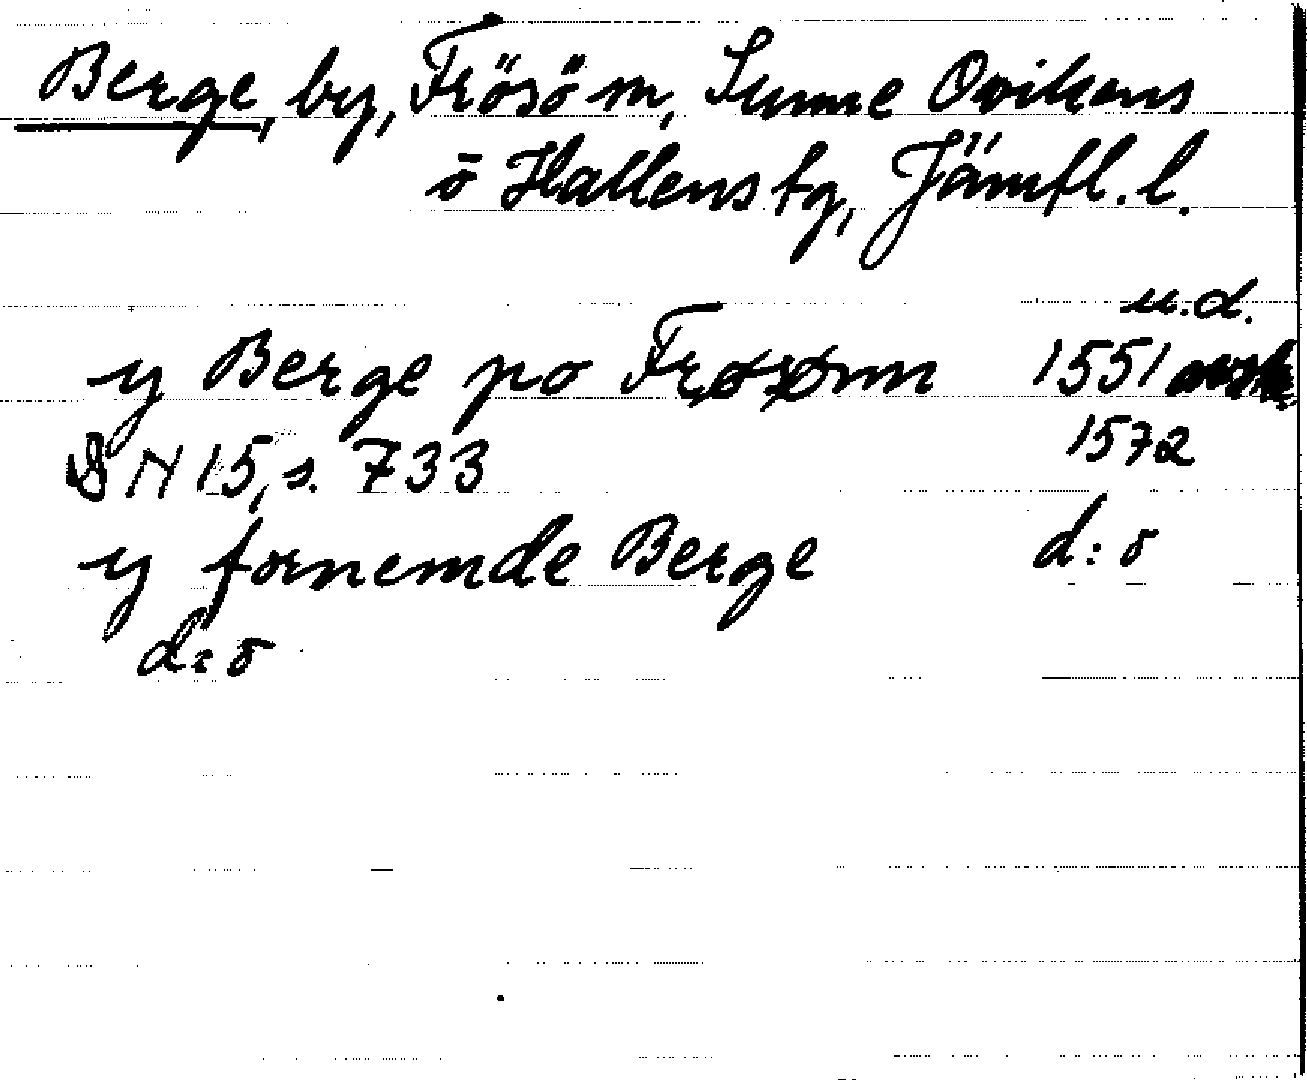 Berge, by, Frösö sn, Sunne Ovikens
o Hallens tg, Jämtl. l.
u.d.
y Berge po Frøxønn 1551 avskr
DN 15, s. 733 1572
y fornemde Berge d:o
d:o